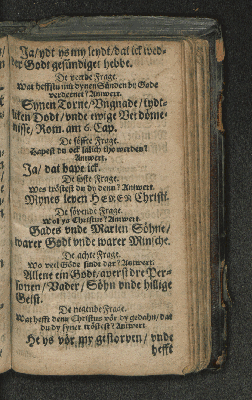 Ja/ydt ys my leydt/dat ick wed-
der Godt gesündiget hebbe.
De veerde Frage.
Wat heffstu mit dynen Sünden by Gode
vordeenet? Antwert.
Synen Torne/Vngnade/tydt-
liken Dodt/vnde ewige Verdöme-
nisse, Rom. am 6. Cap.
De föffte Frage.
Hapest du ock salich tho werden?
Antwert.
Ja/dat hape ick.
De söste Frage.
Wes tröstest du dy denn? Antwert.
Mynes leven HEREN Christi.
De sövende Frage.
Wol ys Christus? Antwert.
Gades vnde Marien Söhne/
warer Godt vnde warer Minsche.
De achte Frage.
Wo veel Göde sindt dar? Antwert.
Allene ein Godt/averst dre Per-
sonen/Vader/Söhn vnde hillige
Geist.
De negende Frage.
Wat hefft denn Christus vör dy gedahn/dat
du dy syner tröstest? Antwert
He ys vör my gestorven/vnde
hefft